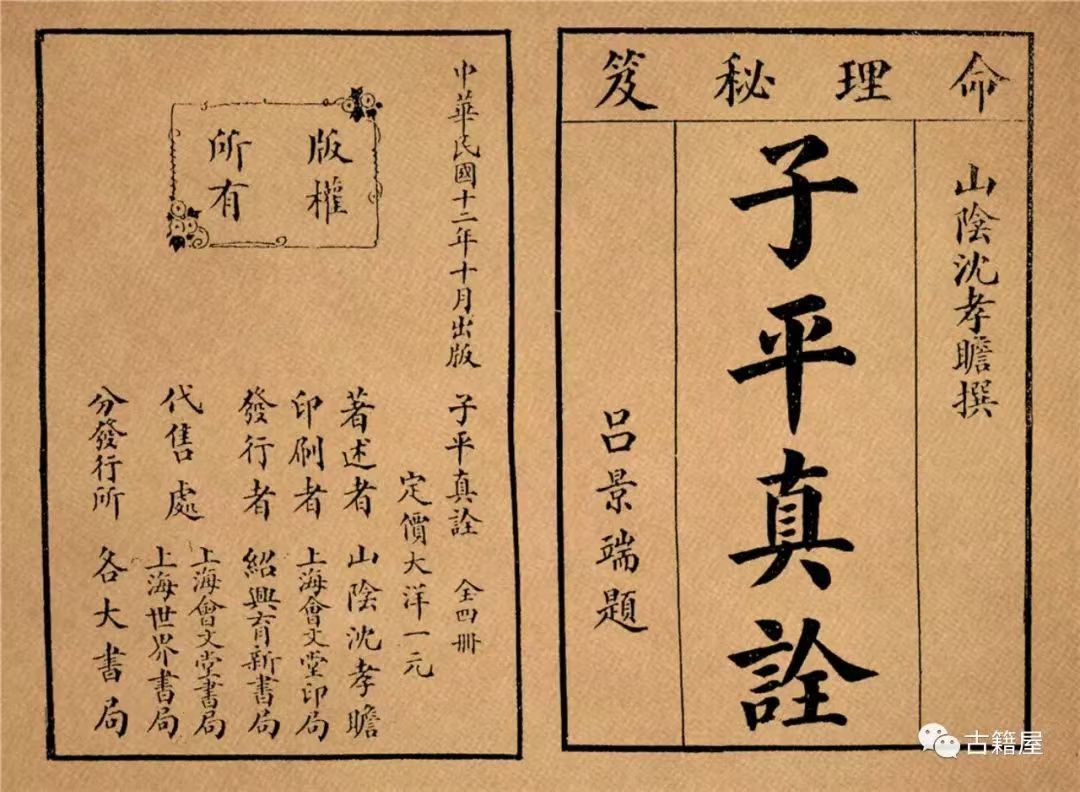 命理秘笈
山陰沈孝瞻撰
子平真詮
呂景端題
中華民國十二年十月出版
版權
所有
子平真詮 全四冊
定價大洋一元
著述者 山陰沈孝瞻
印刷者 上海會文堂印局
發行者 紹興育新書局
代售處 上海會文堂書局
上海世界書局
分發行所 各大書局
古籍屋